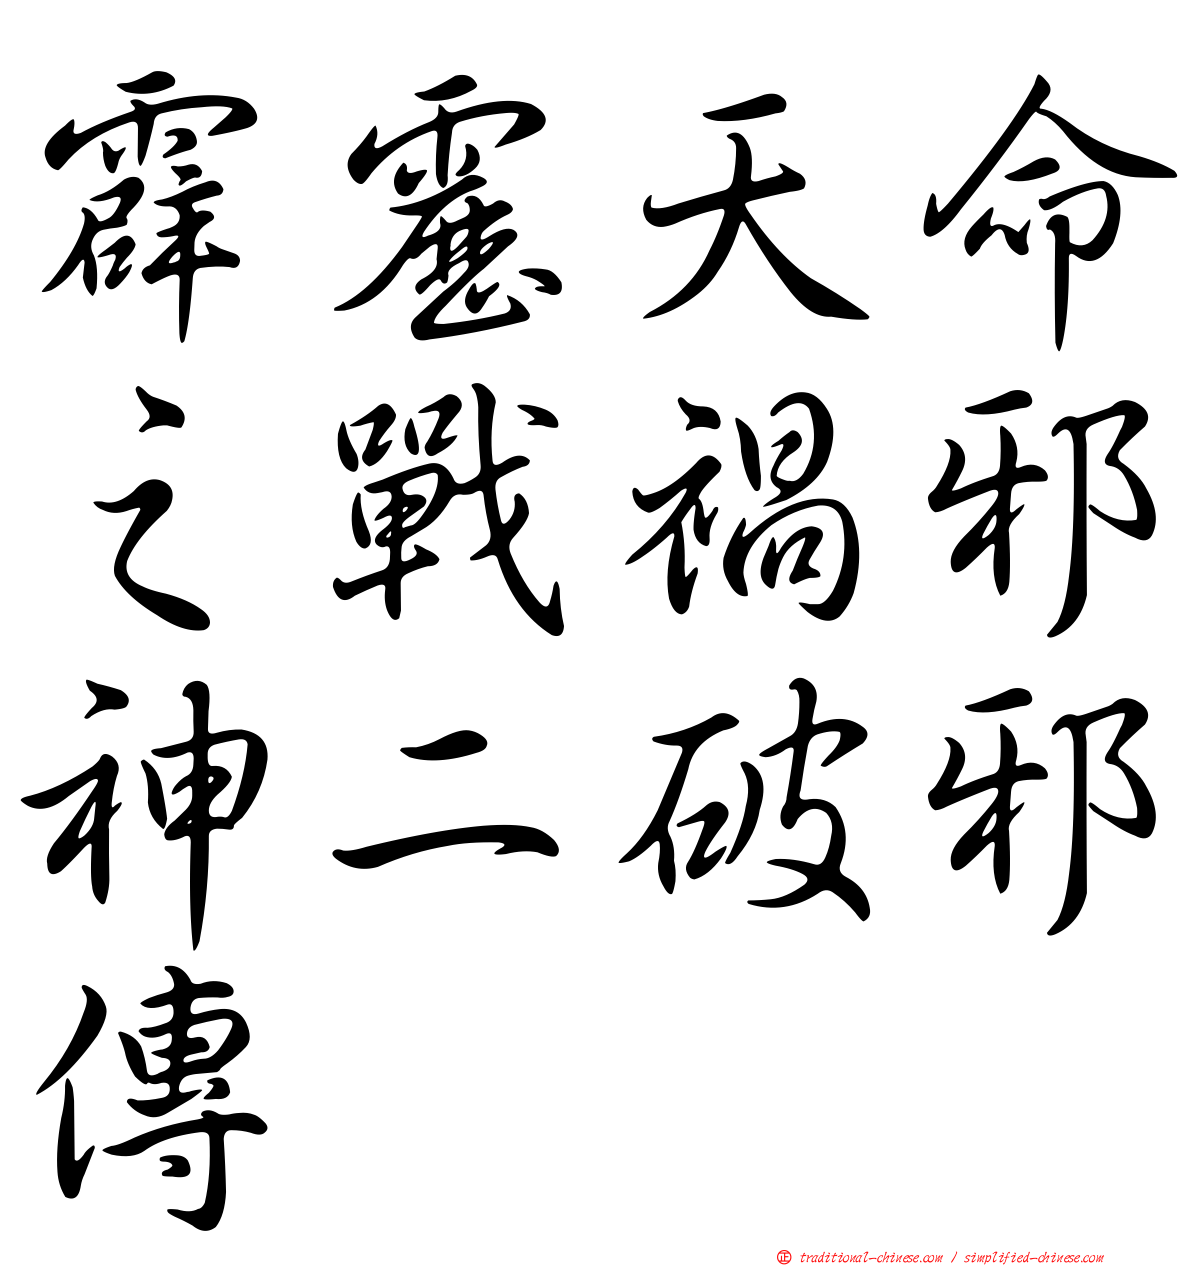 霹靂天命
之戰禍邪
神二破邪
傳
正 traditional-chinese.com / simplified-chinese.com